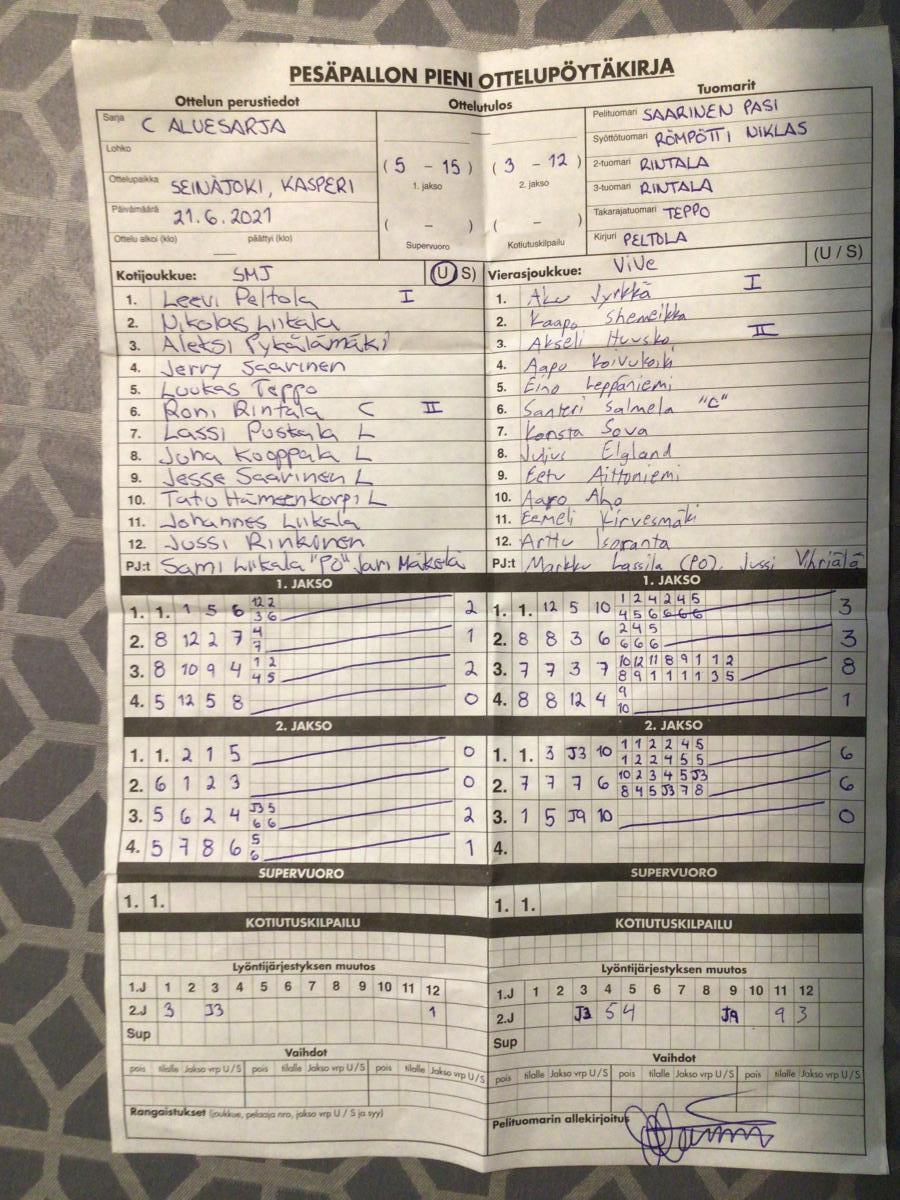 PESÄPALLON PIENI OTTELUPÖYTÄKIRJA
Ottelun perustiedot
Sarja C ALUESARJA
Lohko
Ottelupaikka SEINÄJOKI, KASPERI
Päivämäärä 21.6.2021
Ottelu alkoi (klo) päättyi (klo)
Ottelutulos
( 5 - 15 ) ( 3 - 12 )
1. jakso 2. jakso
( - ) ( - )
Supervuoro Kotiutuskilpailu
Tuomarit
Pelituomari SAARINEN PASI
Syöttötuomari RÖMPÖTTI NIKLAS
2-tuomari RINTALA
3-tuomari RINTALA
Takarajatuomari TEPPO
Kirjuri PELTOLA
Kotijoukkue: SMJ (U S)
1. Leevi Peltola I
2. Nikolas Liikala
3. Aleksi Pykälämäki
4. Jerry Saarinen
5. Luukas Teppo
6. Roni Rintala C II
7. Lassi Puskala L
8. Juha Kooppala L
9. Jesse Saarinen L
10. Tatu Hämeenkorpi L
11. Johannes Liikala
12. Jussi Rinkinen
PJ:t Sami Liikala "PO" Jari Mäkelä
Vierasjoukkue: ViVe (U / S)
1. Aku Jyrkkä I
2. Kaapo Shemeikka
3. Akseli Huusko II
4. Aapo Koivukoski
5. Eino Leppäniemi
6. Santeri Salmela "C"
7. Konsta Sova
8. Julius Elgland
9. Eetu Aittoniemi
10. Aaro Aho
11. Eemeli Kirvesmäki
12. Arttu Isoranta
PJ:t Markku Lassila (PO), Jussi Vihriälä
1. JAKSO
1. 1. 1 5 6 12 2 2
3 6
2. 8 12 2 7 4 1
7
3. 8 10 9 4 1 2 2
4 5
4. 5 12 5 8 0
1. JAKSO
1. 1. 12 5 10 1 2 4 2 4 5 3
4 5 6 6 6 6
2. 8 8 3 6 2 4 5 3
6 6 6
3. 7 7 3 7 10 12 11 8 9 1 1 2 8
8 9 1 1 1 1 3 5
4. 8 8 12 4 9 1
10
2. JAKSO
1. 1. 2 1 5 0
2. 6 1 2 3 0
3. 5 6 2 4 J3 5 2
6 6
4. 5 7 8 6 5 1
6
2. JAKSO
1. 1. 3 J3 10 1 1 2 2 4 5 6
1 2 2 4 5 5
2. 7 7 7 6 10 2 3 4 5 J3 6
8 4 5 J3 7 8
3. 1 5 J9 10 0
4.
SUPERVUORO
1. 1.
SUPERVUORO
1. 1.
KOTIUTUSKILPAILU
KOTIUTUSKILPAILU
Lyöntijärjestyksen muutos
1.J 1 2 3 4 5 6 7 8 9 10 11 12
2.J 3 J3 1
Sup
Lyöntijärjestyksen muutos
1.J 1 2 3 4 5 6 7 8 9 10 11 12
2.J J3 5 4 J9 9 3
Sup
Vaihdot
pois tilalle Jakso vrp U/S pois tilalle Jakso vrp U/S pois tilalle Jakso vrp U/S
Vaihdot
pois tilalle Jakso vrp U/S pois tilalle Jakso vrp U/S pois tilalle Jakso vrp U/S
Rangaistukset (joukkue, pelaaja nro, jakso vrp U / S ja syy)
Pelituomarin allekirjoitus